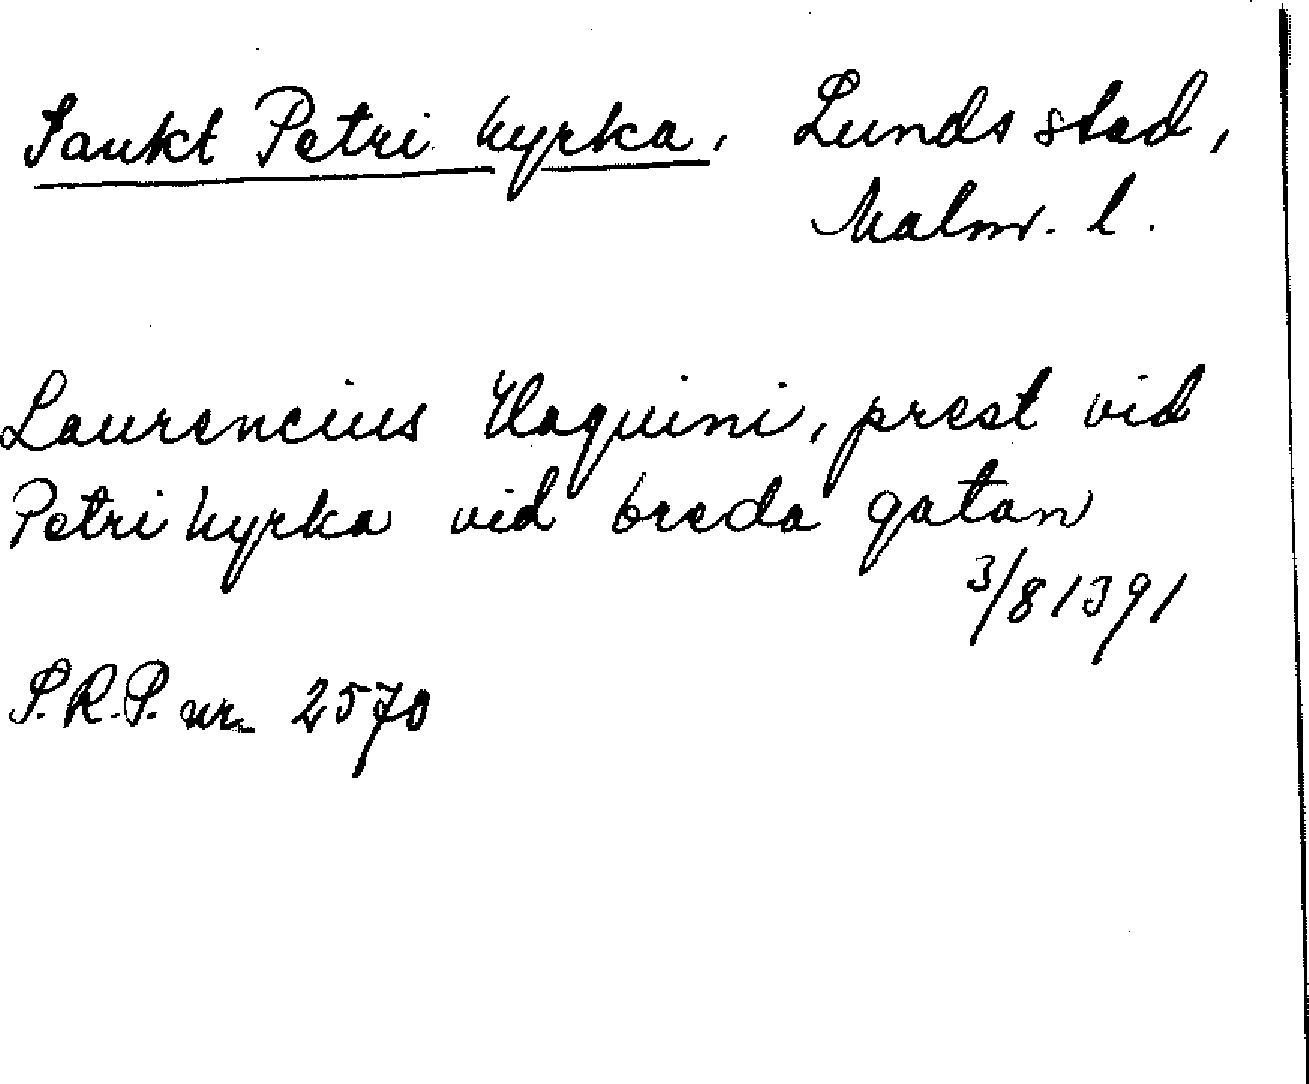 Sankt Petri kyrka, Lunds stad,
Malm. l.
Laurencius Haquini, prest vid
Petri kyrka vid breda gatan
3/8 1391
S.R.P. nr. 2570